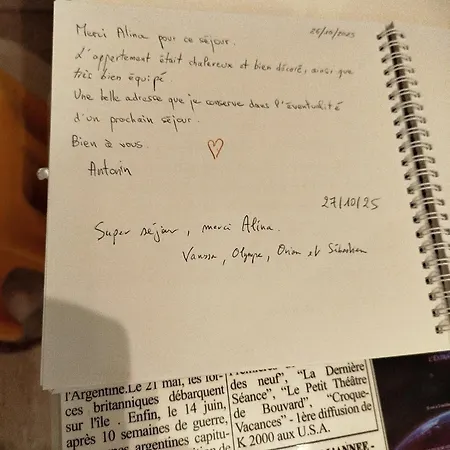 Merci Alina pour ce séjour.
26/10/2025
L'appartement était chaleureux et bien décoré, ainsi que
très bien équipé.
Une belle adresse que je conserve dans l'éventualité
d'un prochain séjour.
Bien à vous.
Antonin
27/10/25
Super séjour, merci Alina.
Vanessa, Olympe, Orion et Sébastien
l'Argentine.Le 21 mai, les for-
ces britanniques débarquent
sur l'île . Enfin, le 14 juin,
après 10 semaines de guerre,
argentines capitu-
des neuf", "La Dernière
Séance", "Le Petit Théâtre
de Bouvard", "Croque-
Vacances" - 1ère diffusion de
K 2000 aux U.S.A.